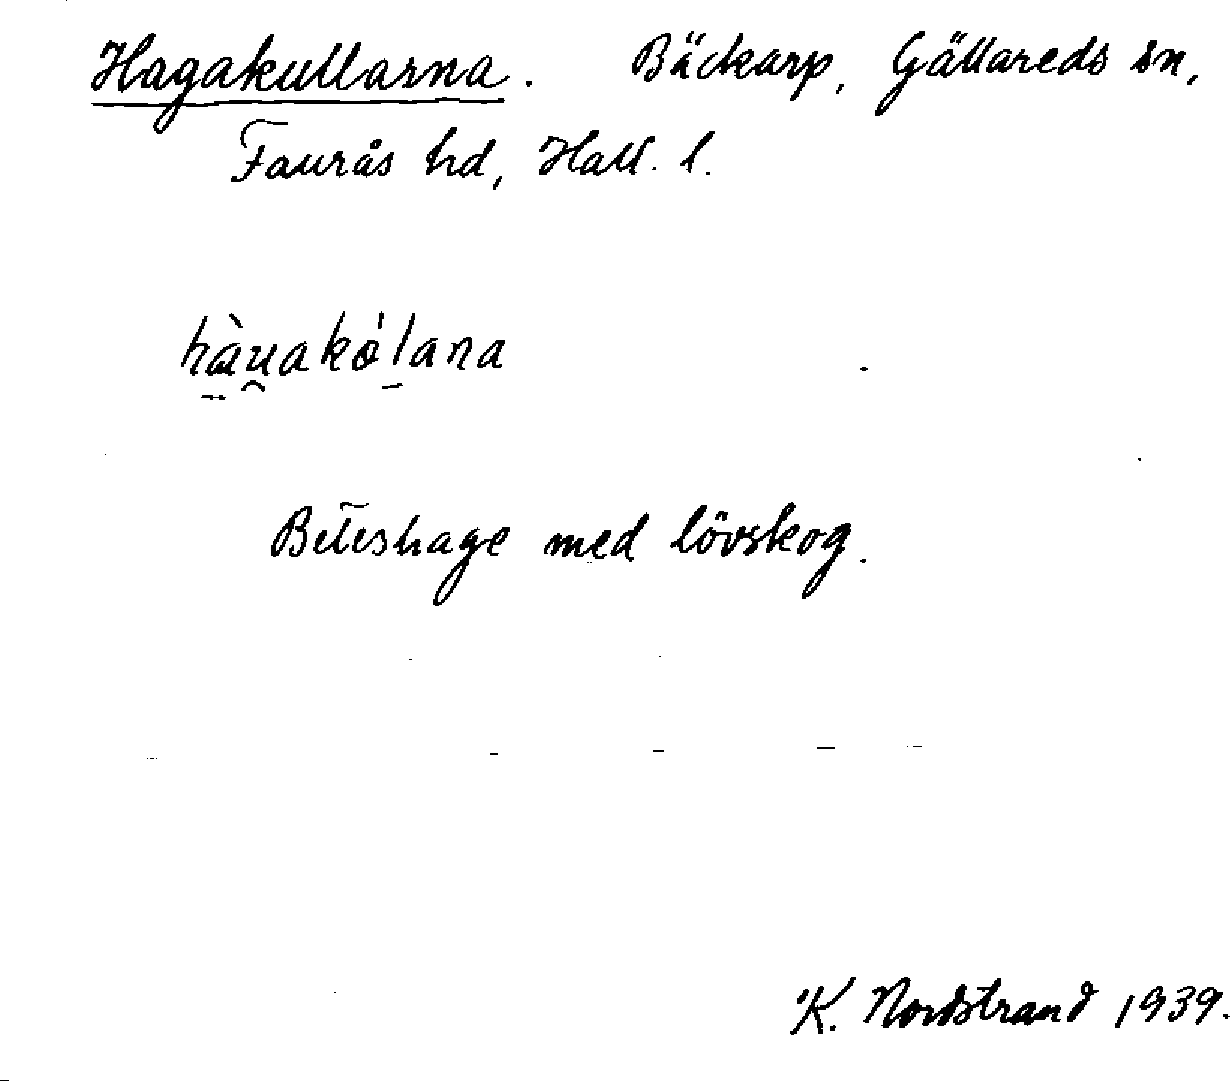 Hagakullarna. Bäckarp, Gällareds sn,
Faurås hd, Hall. l.
hàu̯akǿlana
Beteshage med lövskog.
K. Nordstrand 1939.